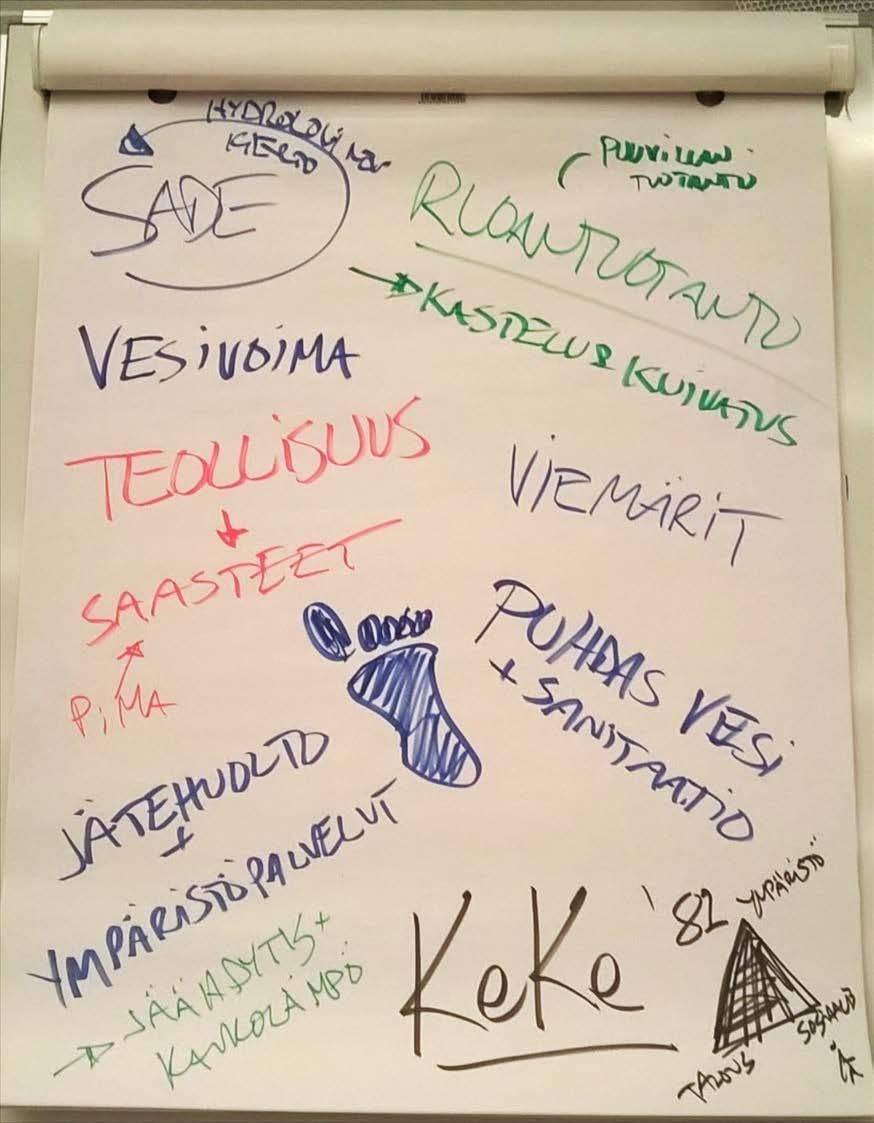 HYDROLOGINEN
KIERTO
SADE
PUUVILLAN-
TUOTANTO
RUOANTUOTANTO
→ KASTELU & KUIVATUS
VESiVOiMA
TEOLLiSUUS
↓
SAASTEET
PiMA
VIEMÄRiT
PUHDAS VESi
+ SANiTAATiO
JÄTEHUOLTO
+
YMPÄRiSTÖPALVELUT
→ JÄÄHDYTYS +
KAUKOLÄMPÖ
KeKe '82
YMPÄRiSTÖ
TALOUS